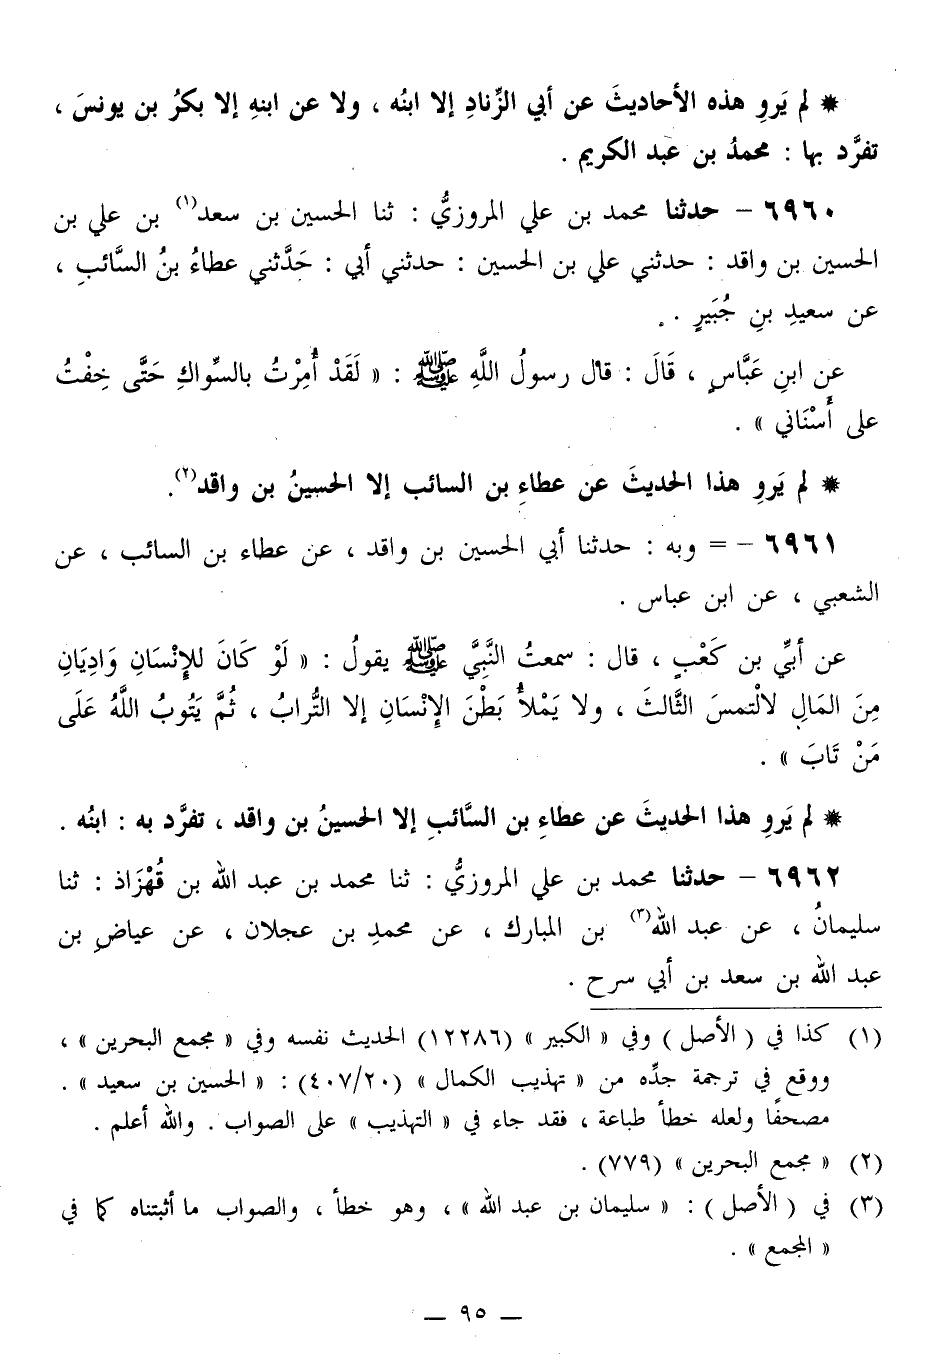 * لم يَروِ هذه الأحاديثَ عن أبي الزِّنادِ إلا ابنُه ، ولا عن ابنهِ إلا بكرُ بن يونسَ ،
تفرَّد بها : محمدُ بن عبد الكريم .
٦٩٦٠ – حدثنا محمد بن علي المروزيُّ : ثنا الحسين بن سعد(١) بن علي بن
الحسين بن واقد : حدثني علي بن الحسين : حدثني أبي : حَدَّثني عطاءُ بنُ السَّائبِ ،
عن سعيدِ بنِ جُبَيرٍ .
عن ابنِ عَبَّاسٍ ، قَالَ : قال رسولُ اللَّهِ ﷺ : « لَقَدْ أُمِرْتُ بالسِّواكِ حَتَّى خِفْتُ
على أَسْنَاني » .
* لم يَروِ هذا الحديثَ عن عطاءِ بن السائب إلا الحسينُ بن واقد(٢).
٦٩٦١ – = وبه : حدثنا أبي الحسين بن واقد ، عن عطاء بن السائب ، عن
الشعبي ، عن ابن عباس .
عن أبيِّ بن كَعْبٍ ، قال : سمعتُ النَّبِيَّ ﷺ يقولُ : « لَوْ كَانَ للإِنْسَانِ وَادِيَانِ
مِنَ المَالِ لالْتمسَ الثَّالثَ ، ولا يَمْلأُ بَطْنَ الإِنْسَانِ إلا التُّرابُ ، ثُمَّ يَتُوبُ اللَّهُ عَلَى
مَنْ تَابَ » .
* لم يَروِ هذا الحديثَ عن عطاءِ بن السَّائبِ إلا الحسينُ بن واقد ، تفرَّد به : ابنُه .
٦٩٦٢ – حدثنا محمد بن علي المروزيُّ : ثنا محمد بن عبد الله بن قُهْزَاذ : ثنا
سليمانُ ، عن عبد الله(٣) بن المبارك ، عن محمدِ بن عجلان ، عن عياضِ بن
عبد الله بن سعد بن أبي سرح .
(١) كذا في ( الأصل ) وفي « الكبير » (١٢٢٨٦) الحديث نفسه وفي « مجمع البحرين » ،
ووقع في ترجمة جدِّه من « تهذيب الكمال » (٤٠٧/٢٠) : « الحسين بن سعيد » .
مصحفًا ولعله خطأ طباعة ، فقد جاء في « التهذيب » على الصواب . والله أعلم .
(٢) « مجمع البحرين » (٧٧٩) .
(٣) في ( الأصل ) : « سليمان بن عبد الله » ، وهو خطأ ، والصواب ما أثبتناه كما في
« المجمع » .
— ٩٥ —